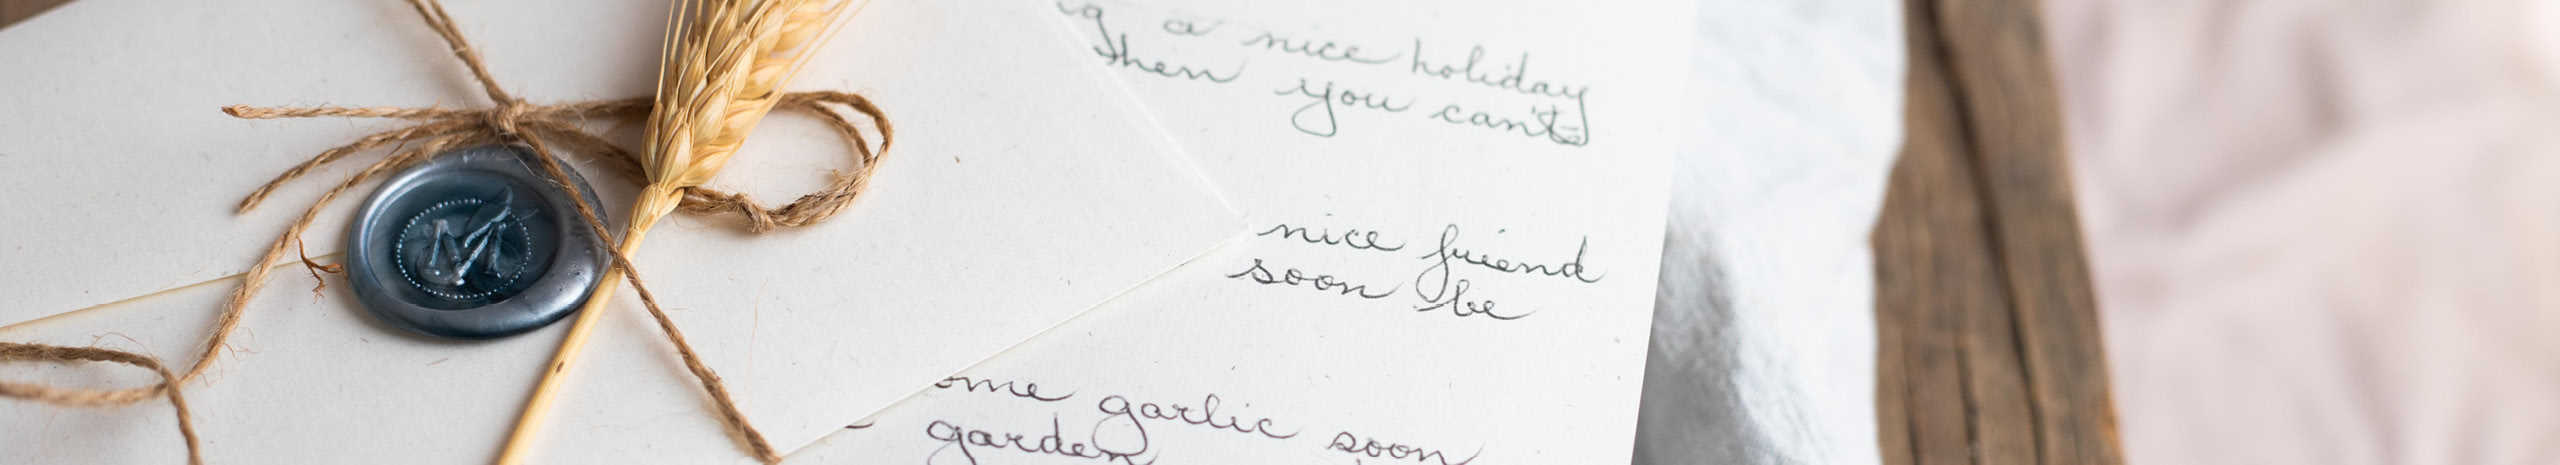 M
a nice holiday
when you can't
nice friend
soon be
garlic soon
garden